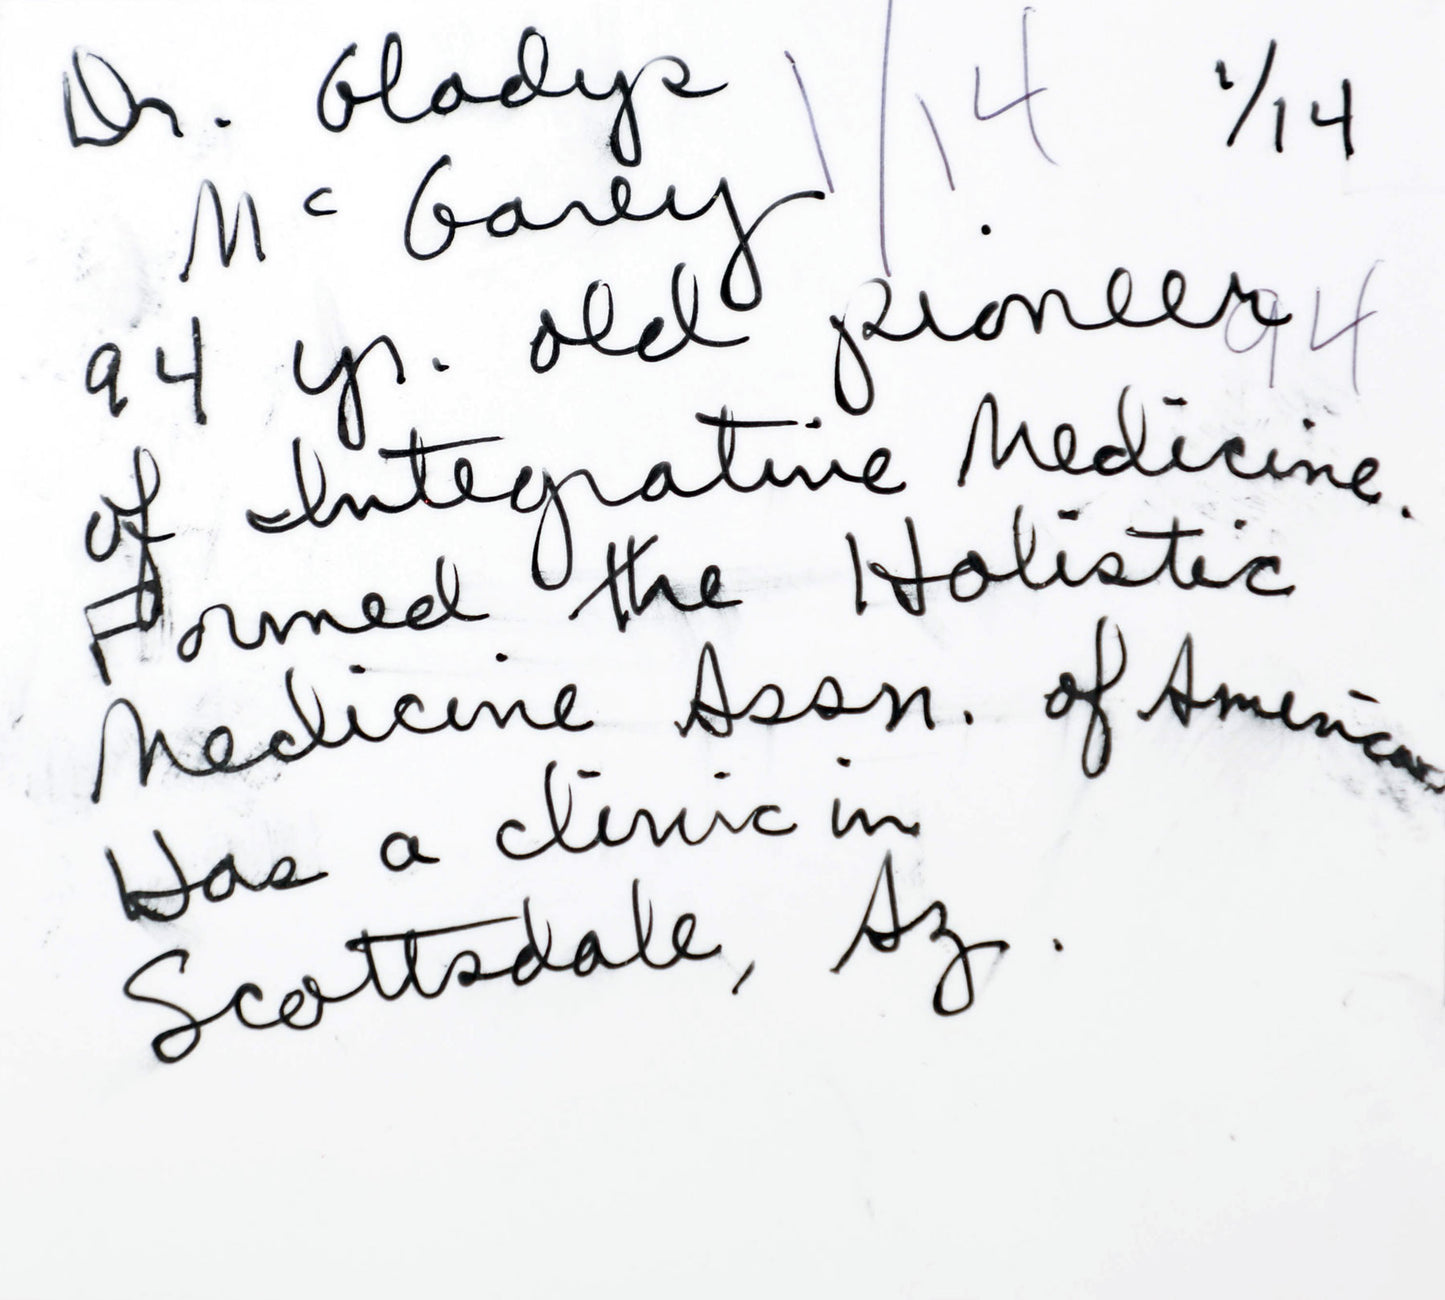 Dr. Gladys 1/14 1/14
Mc Garey
94 yr. old pioneer 94
of Integrative Medicine.
Formed the Holistic
Medicine Assn. of America
Has a clinic in
Scottsdale, Az.